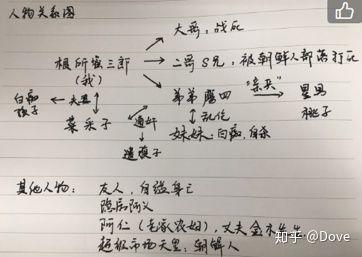 人物关系图
大哥：战死
根所蜜三郎 → 二哥S兄，被朝鲜人部落打死
（我）
白痴 ← 夫妻 弟弟鹰四 "亲卫" 星男
孩子 菜采子 通奸 乱伦 桃子
妹妹：白痴，自杀
遗腹子
其他人物： 友人，自缢身亡
隐居阿义
阿仁（老家农妇），丈夫金木
超级市场天皇：朝鲜人
知乎 @Dove